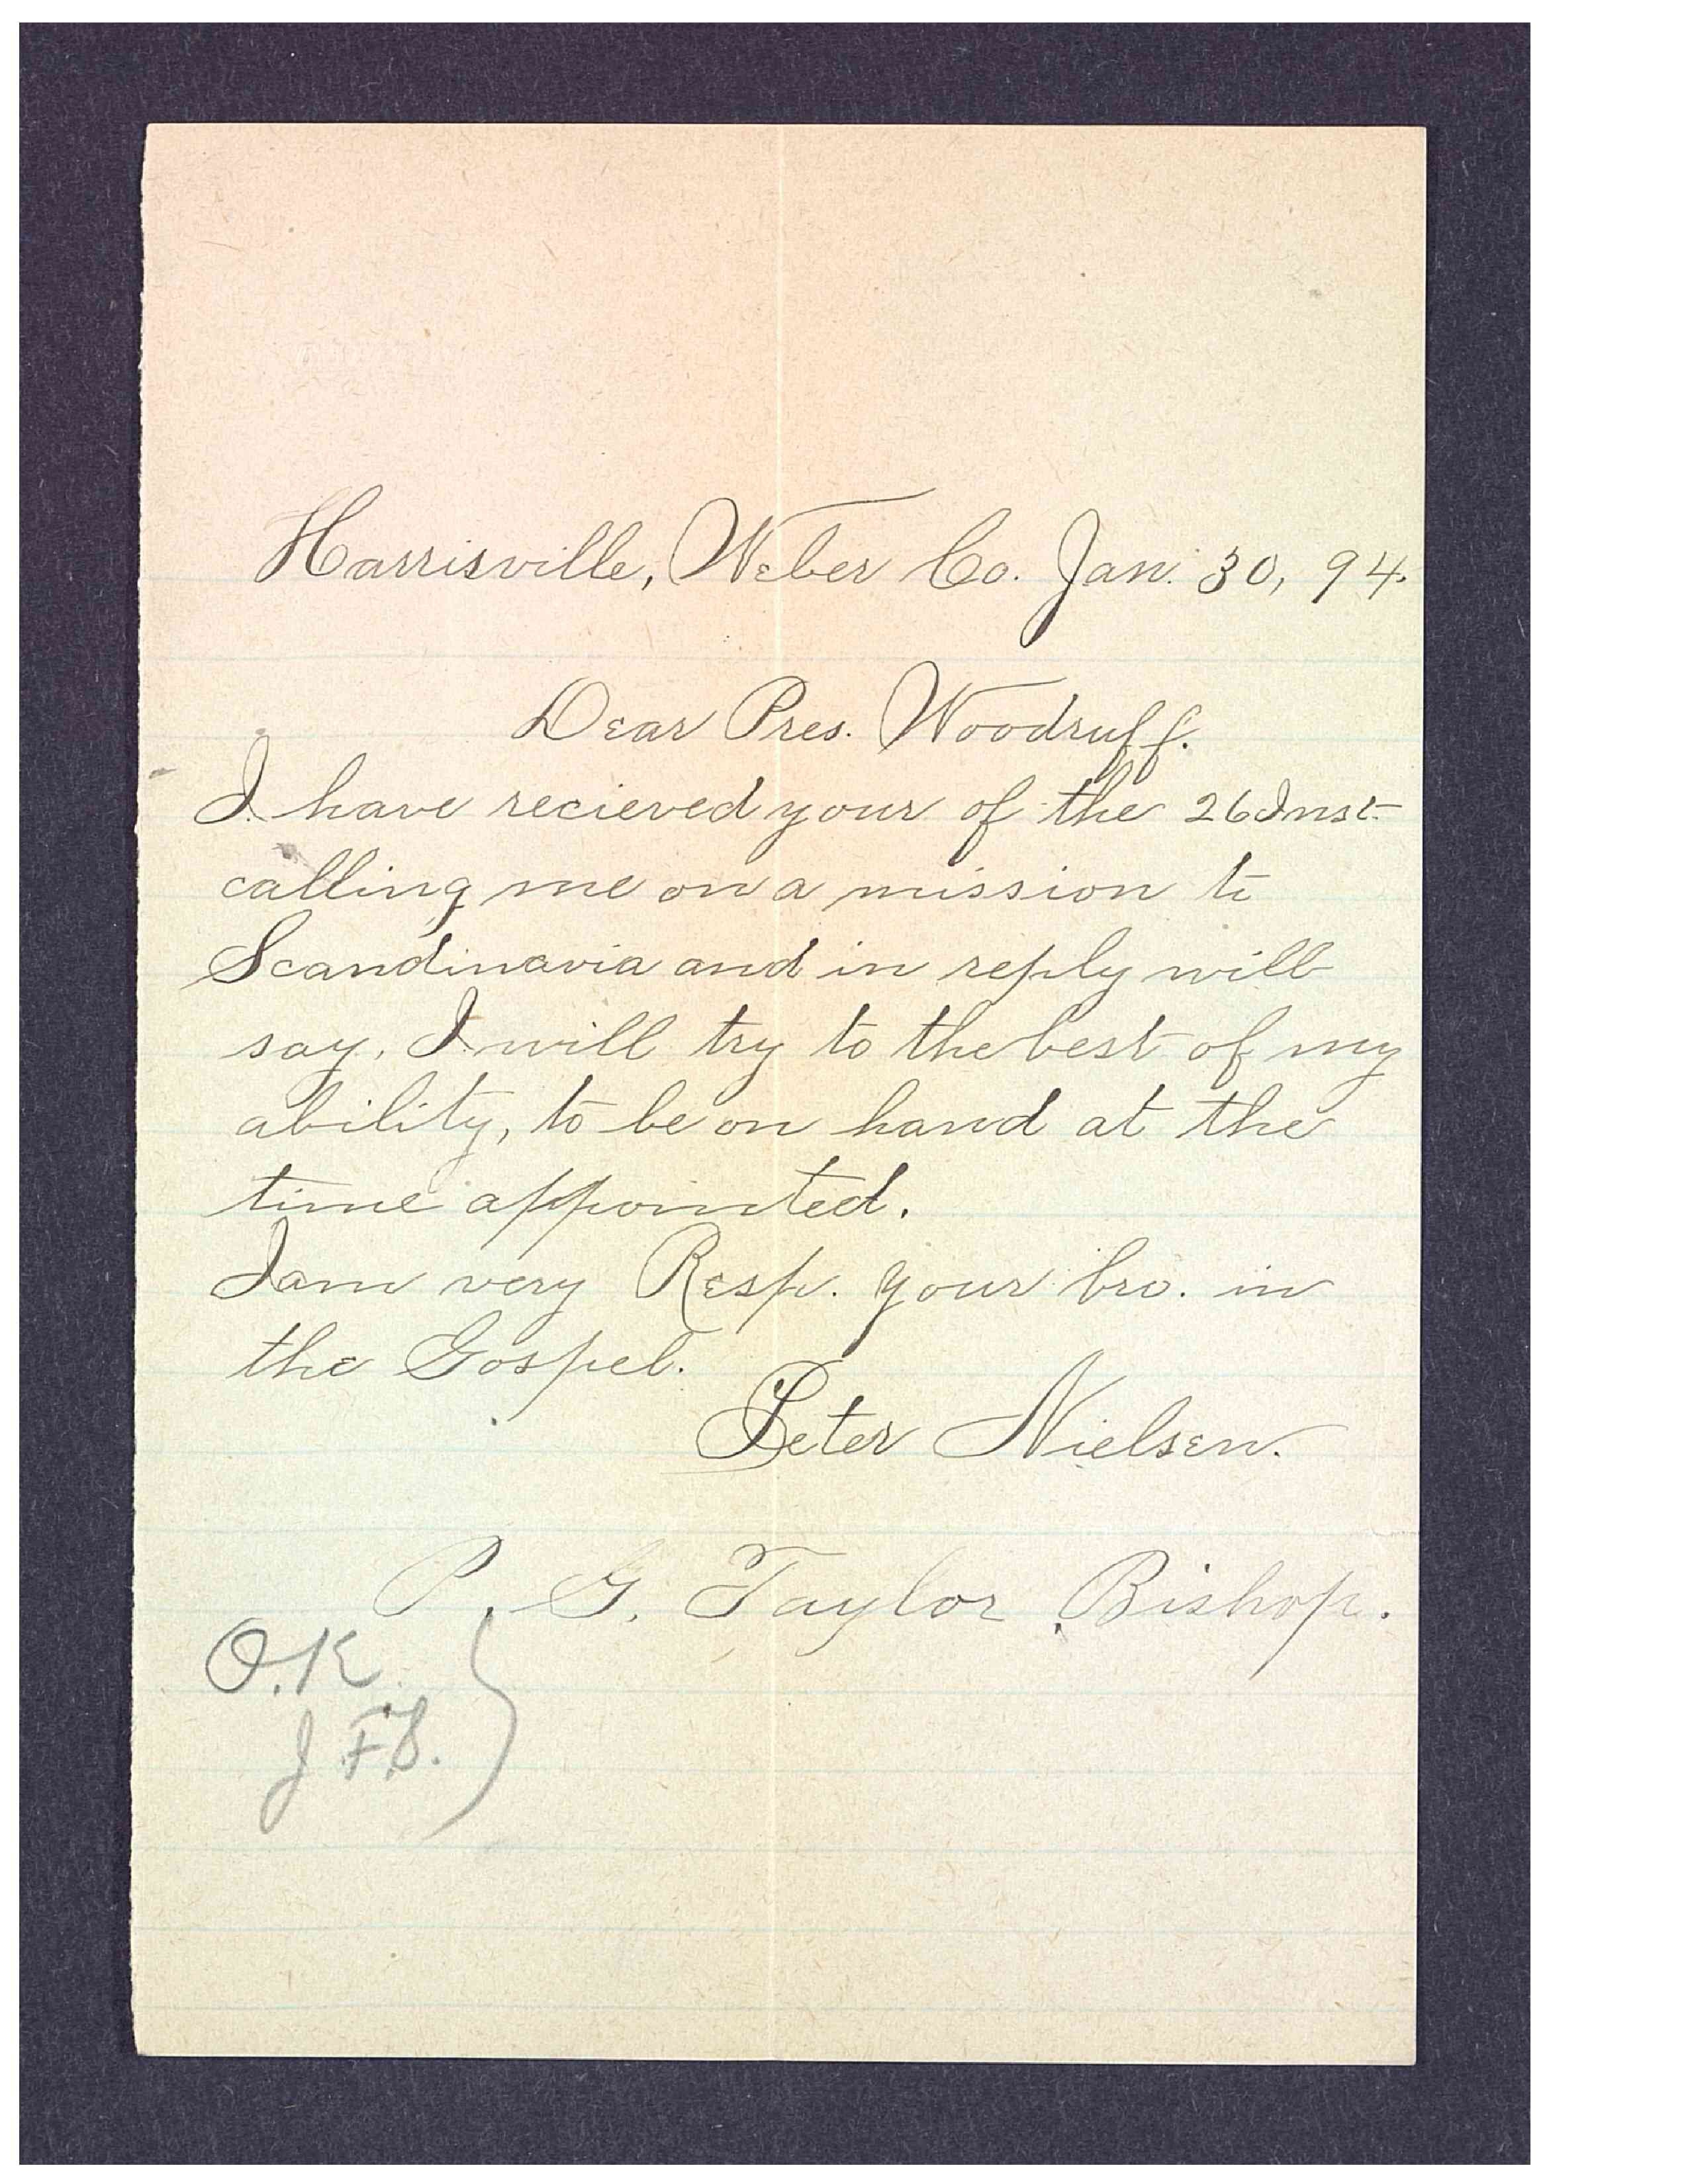 Harrisville, Weber Co. Jan. 30, 94.
Dear Pres. Woodruff.
I have recieved your of the 26 Inst.
calling me on a mission to
Scandinavia and in reply will
say, I will try to the best of my
ability, to be on hand at the
time appointed.
I am very Resp. your bro. in
the Gospel.
Peter Nielsen.
P. G. Taylor, Bishop.
O.K.
J F S.